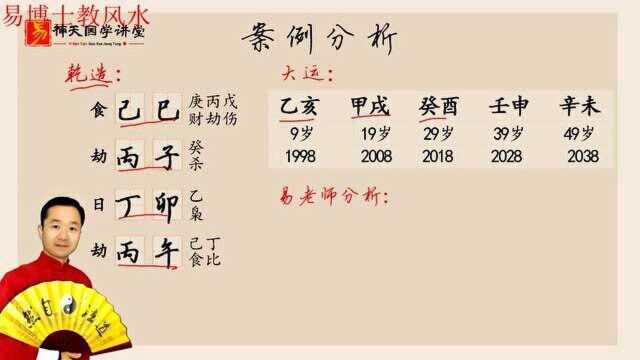 易博士教风水
易 補天国学讲堂
案例分析
乾造：
食 己巳 庚丙戊
财劫伤
劫 丙子 癸
杀
日 丁卯 乙
枭
劫 丙午 己丁
食比
大运：
乙亥 甲戌 癸酉 壬申 辛未
9岁 19岁 29岁 39岁 49岁
1998 2008 2018 2028 2038
易老师分析：